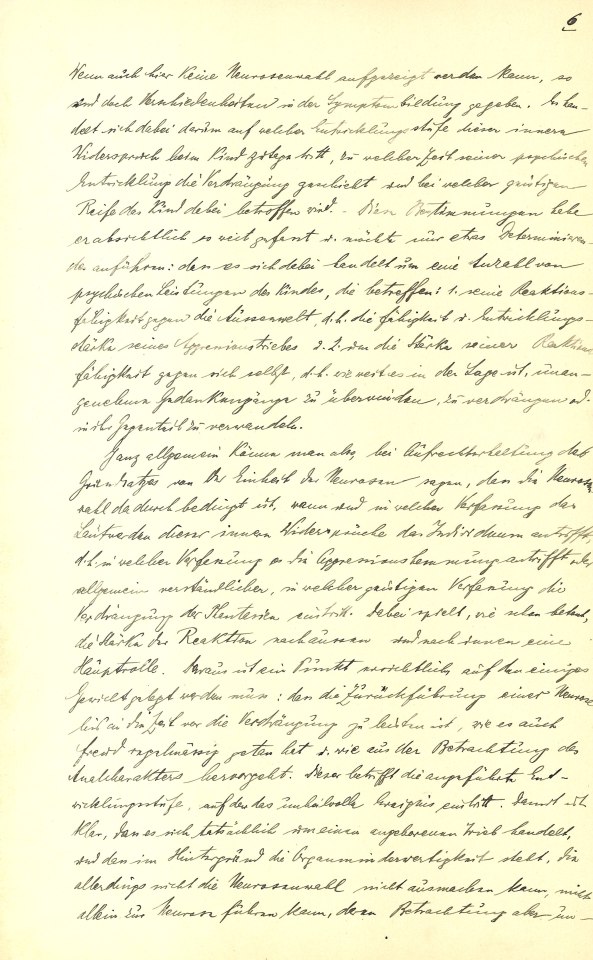 6
Wenn auch hier keine Neurosenwahl aufgezeigt werden kann, so
sind doch Verschiedenheiten in der Symptombildung gegeben. Es han-
delt sich dabei darum auf welcher Entwicklungsstufe dieser innere
Widerspruch beim Kind zutage tritt, zu welcher Zeit seiner psychischen
Entwicklung die Verdrängung geschieht und bei welcher geistigen
Reife das Kind dabei betroffen wird. - Diese Bestimmungen habe
er absichtlich so weit gefasst u. möchte nur etwas Determinieren-
des anführen: dass es sich dabei handelt um eine Anzahl von
psychischen Leistungen des Kindes, die betreffen: 1. seine Reaktions-
fähigkeit gegen die Aussenwelt, d.h. die Fähigkeit u. Entwicklungs-
stärke seines Aggressionstriebes u. 2. um die Stärke seiner Reaktions-
fähigkeit gegen sich selbst, d.h. wie weit es in der Lage ist, unan-
genehme Gedankengänge zu überwinden, zu verdrängen od.
in ihr Gegenteil zu verwandeln.
Ganz allgemein könne man also, bei Aufrechterhaltung des
Grundsatzes von der Einheit der Neurosen sagen, dass die Neurosen-
wahl dadurch bedingt ist, wann und in welcher Verfassung das
Lautwerden dieser inneren Widersprüche das Individuum antrifft,
d.h. in welcher Verfassung es die Aggressionshemmung antrifft oder
allgemein verständlicher, in welcher geistigen Verfassung die
Verdrängung der Phantasien eintritt. Dabei spielt, wie schon betont,
die Stärke der Reaktion nach aussen und nach innen eine
Hauptrolle. Daraus ist ein Punkt ersichtlich, auf den einiges
Gewicht gelegt werden muss: dass die Zurückführung einer Neurose
bis an die Zeit vor die Verdrängung zu leisten ist, wie es auch
Freud regelmässig getan hat u. wie aus der Betrachtung des
Analcharakters hervorgeht. Dieser betrifft die angeführte Ent-
wicklungsstufe, auf der das unheilvolle Ereignis eintritt. Damit ist
klar, dass es sich tatsächlich um einen angeborenen Trieb handelt,
und dass im Hintergrund die Organminderwertigkeit steht, die
allerdings nicht die Neurosenwahl nicht ausmachen kann, nicht
allein zur Neurose führen kann, deren Betrachtung aber un-